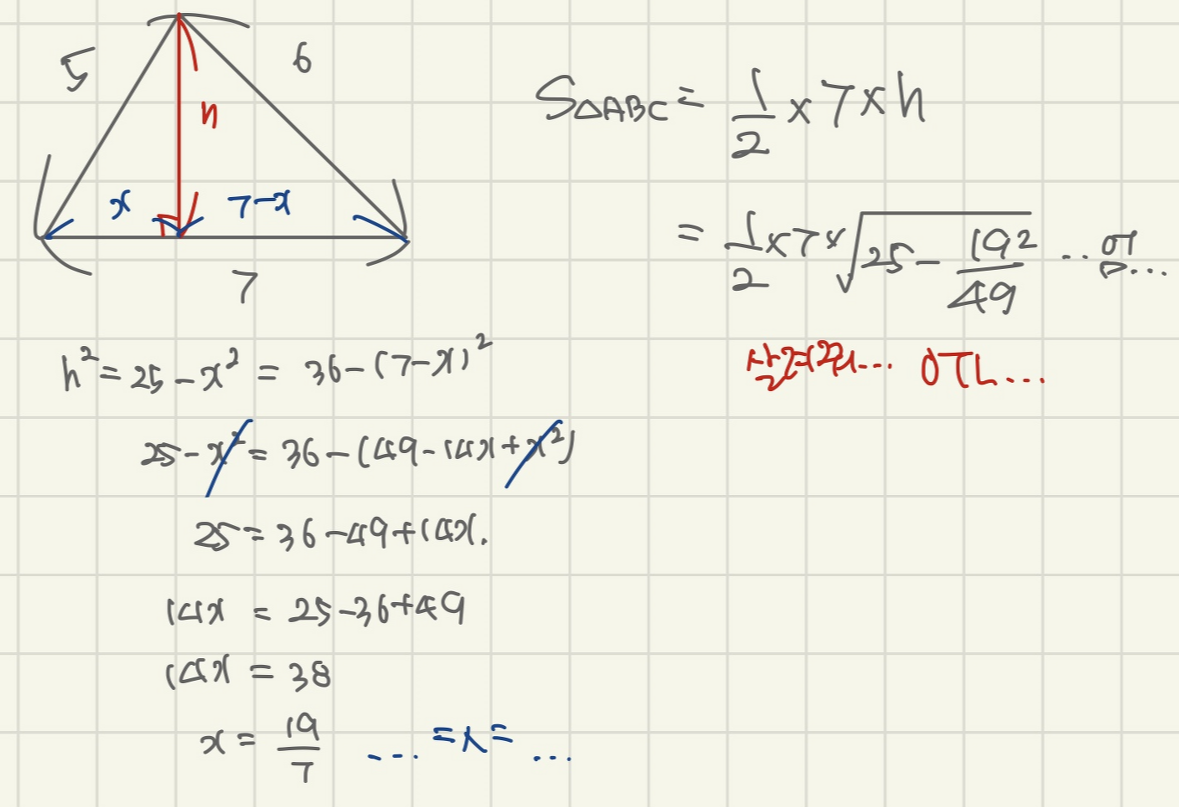 5
6
h
x
7-x
7
S△ABC = 1/2 × 7 × h
= 1/2 × 7 × √(25 - 19²/49) ...
OTL...
h² = 25 - x² = 36 - (7-x)²
25 - x² = 36 - (49 - 14x + x²)
25 = 36 - 49 + 14x.
14x = 25 - 36 + 49
14x = 38
x = 19/7 ... =ㅅ= ...